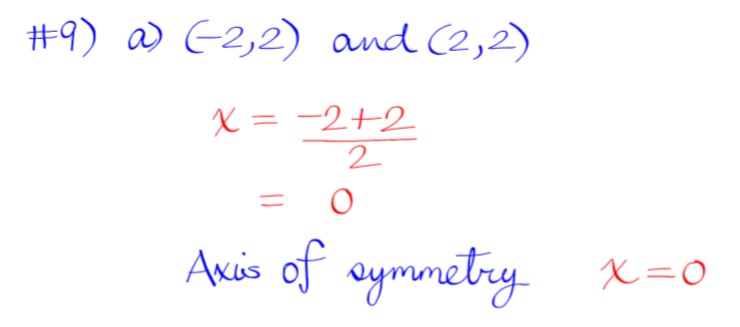 #9) a) (-2,2) and (2,2)
x = -2+2
2
= 0
Axis of symmetry x=0